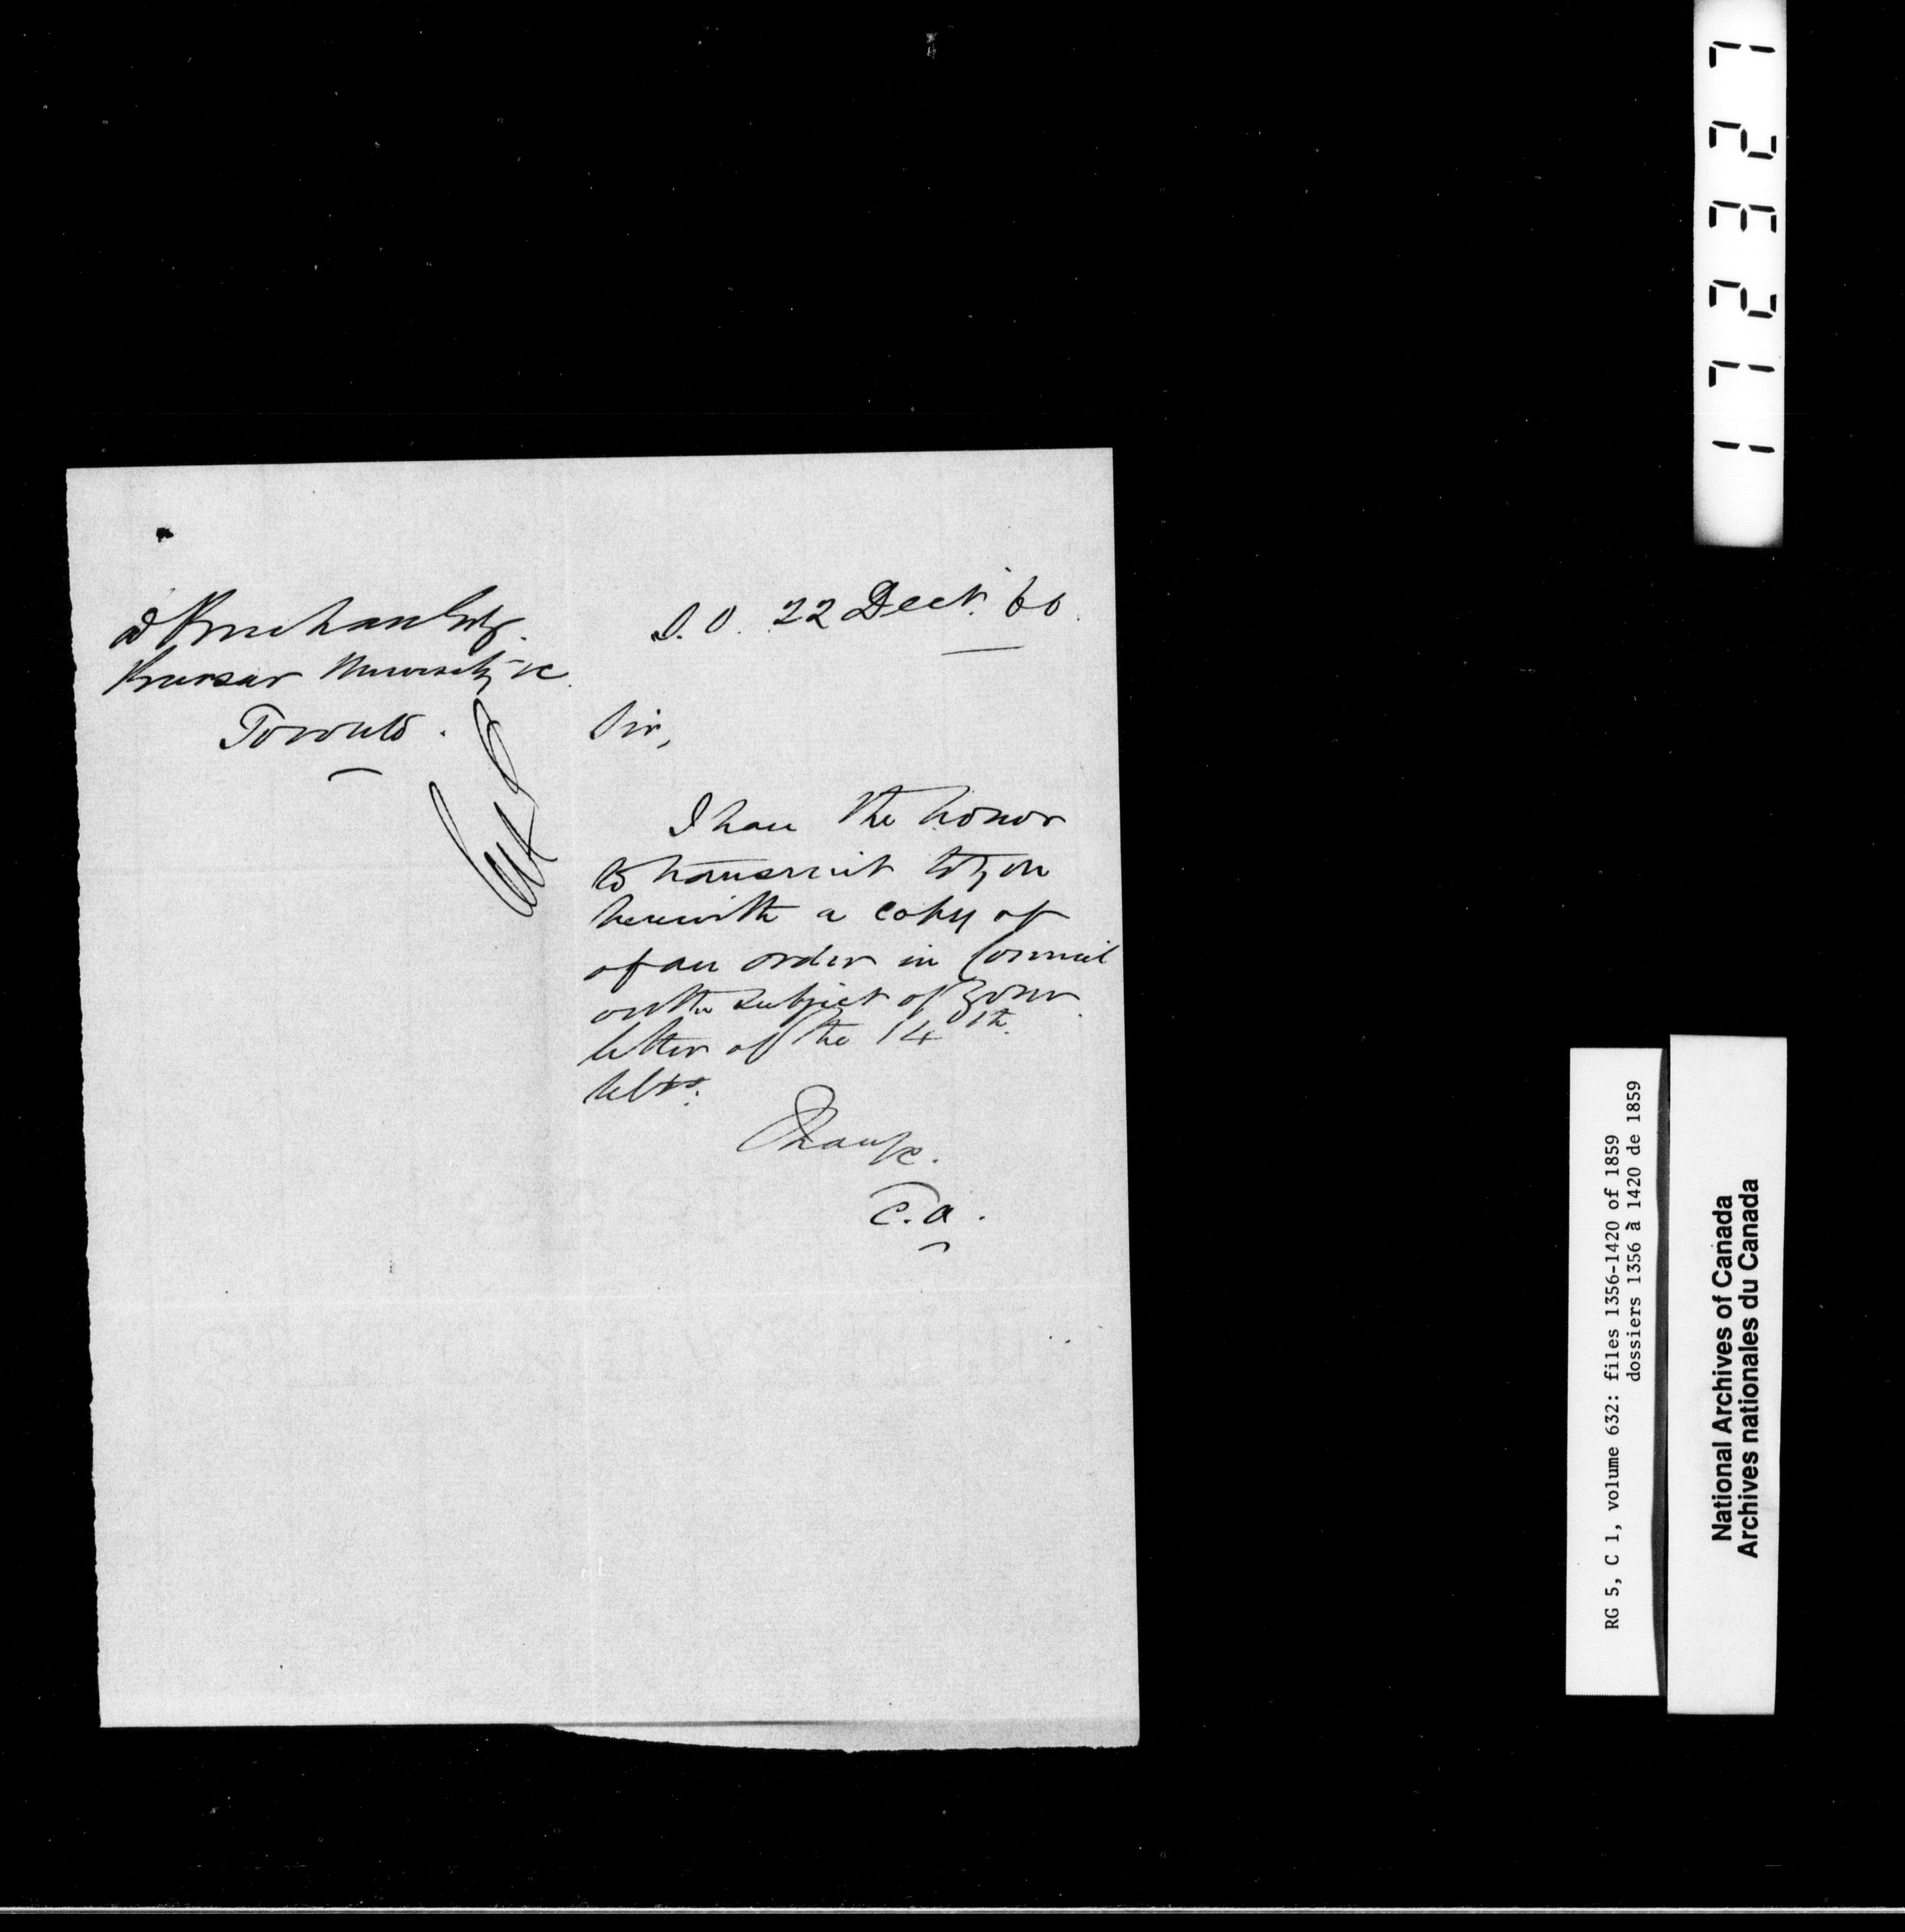 D Buchan Esq.
Bursar University &c
Toronto.
S.O. 22 Decr. 60.
Sir,
I have the honor
to transmit to you
herewith a copy of
of an order in Council
on the subject of your
letter of the 14th.
Ulto.
I have &c.
C.A.
172327
RG 5, C 1, volume 632: files 1356-1420 of 1859
dossiers 1356 à 1420 de 1859
National Archives of Canada
Archives nationales du Canada